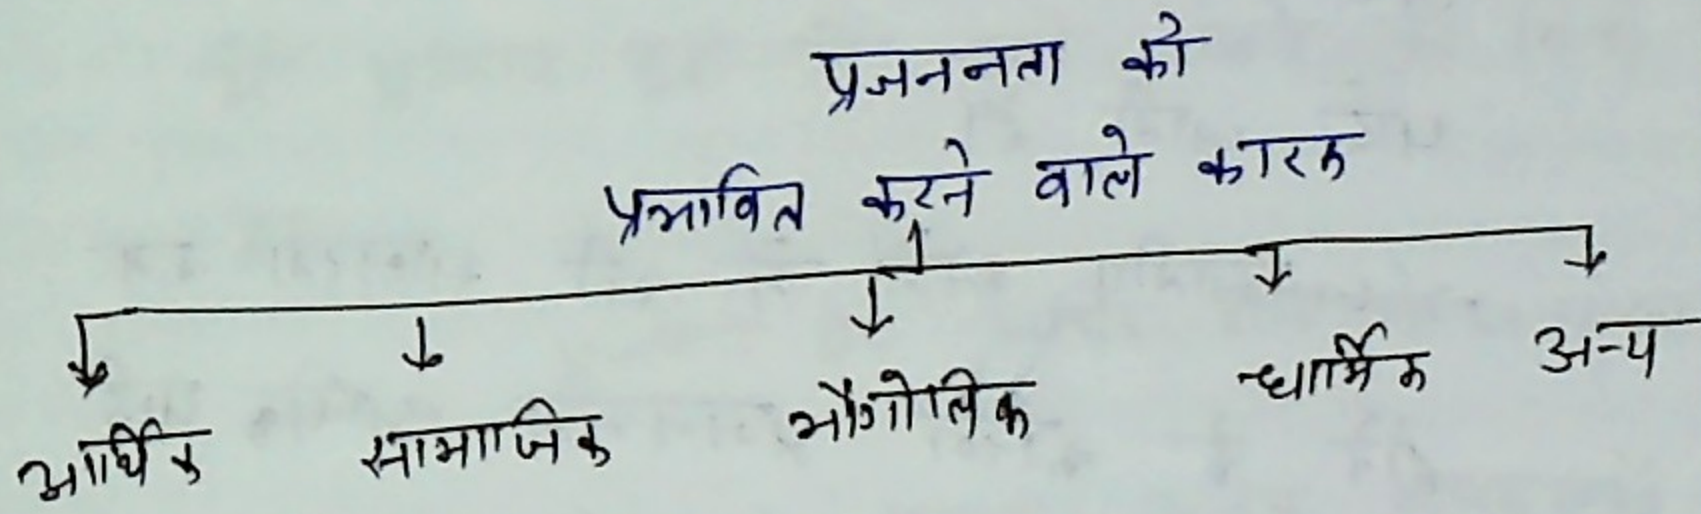 प्रजननता को
प्रभावित करने वाले कारक
आर्थिक सामाजिक भौगोलिक धार्मिक अन्य